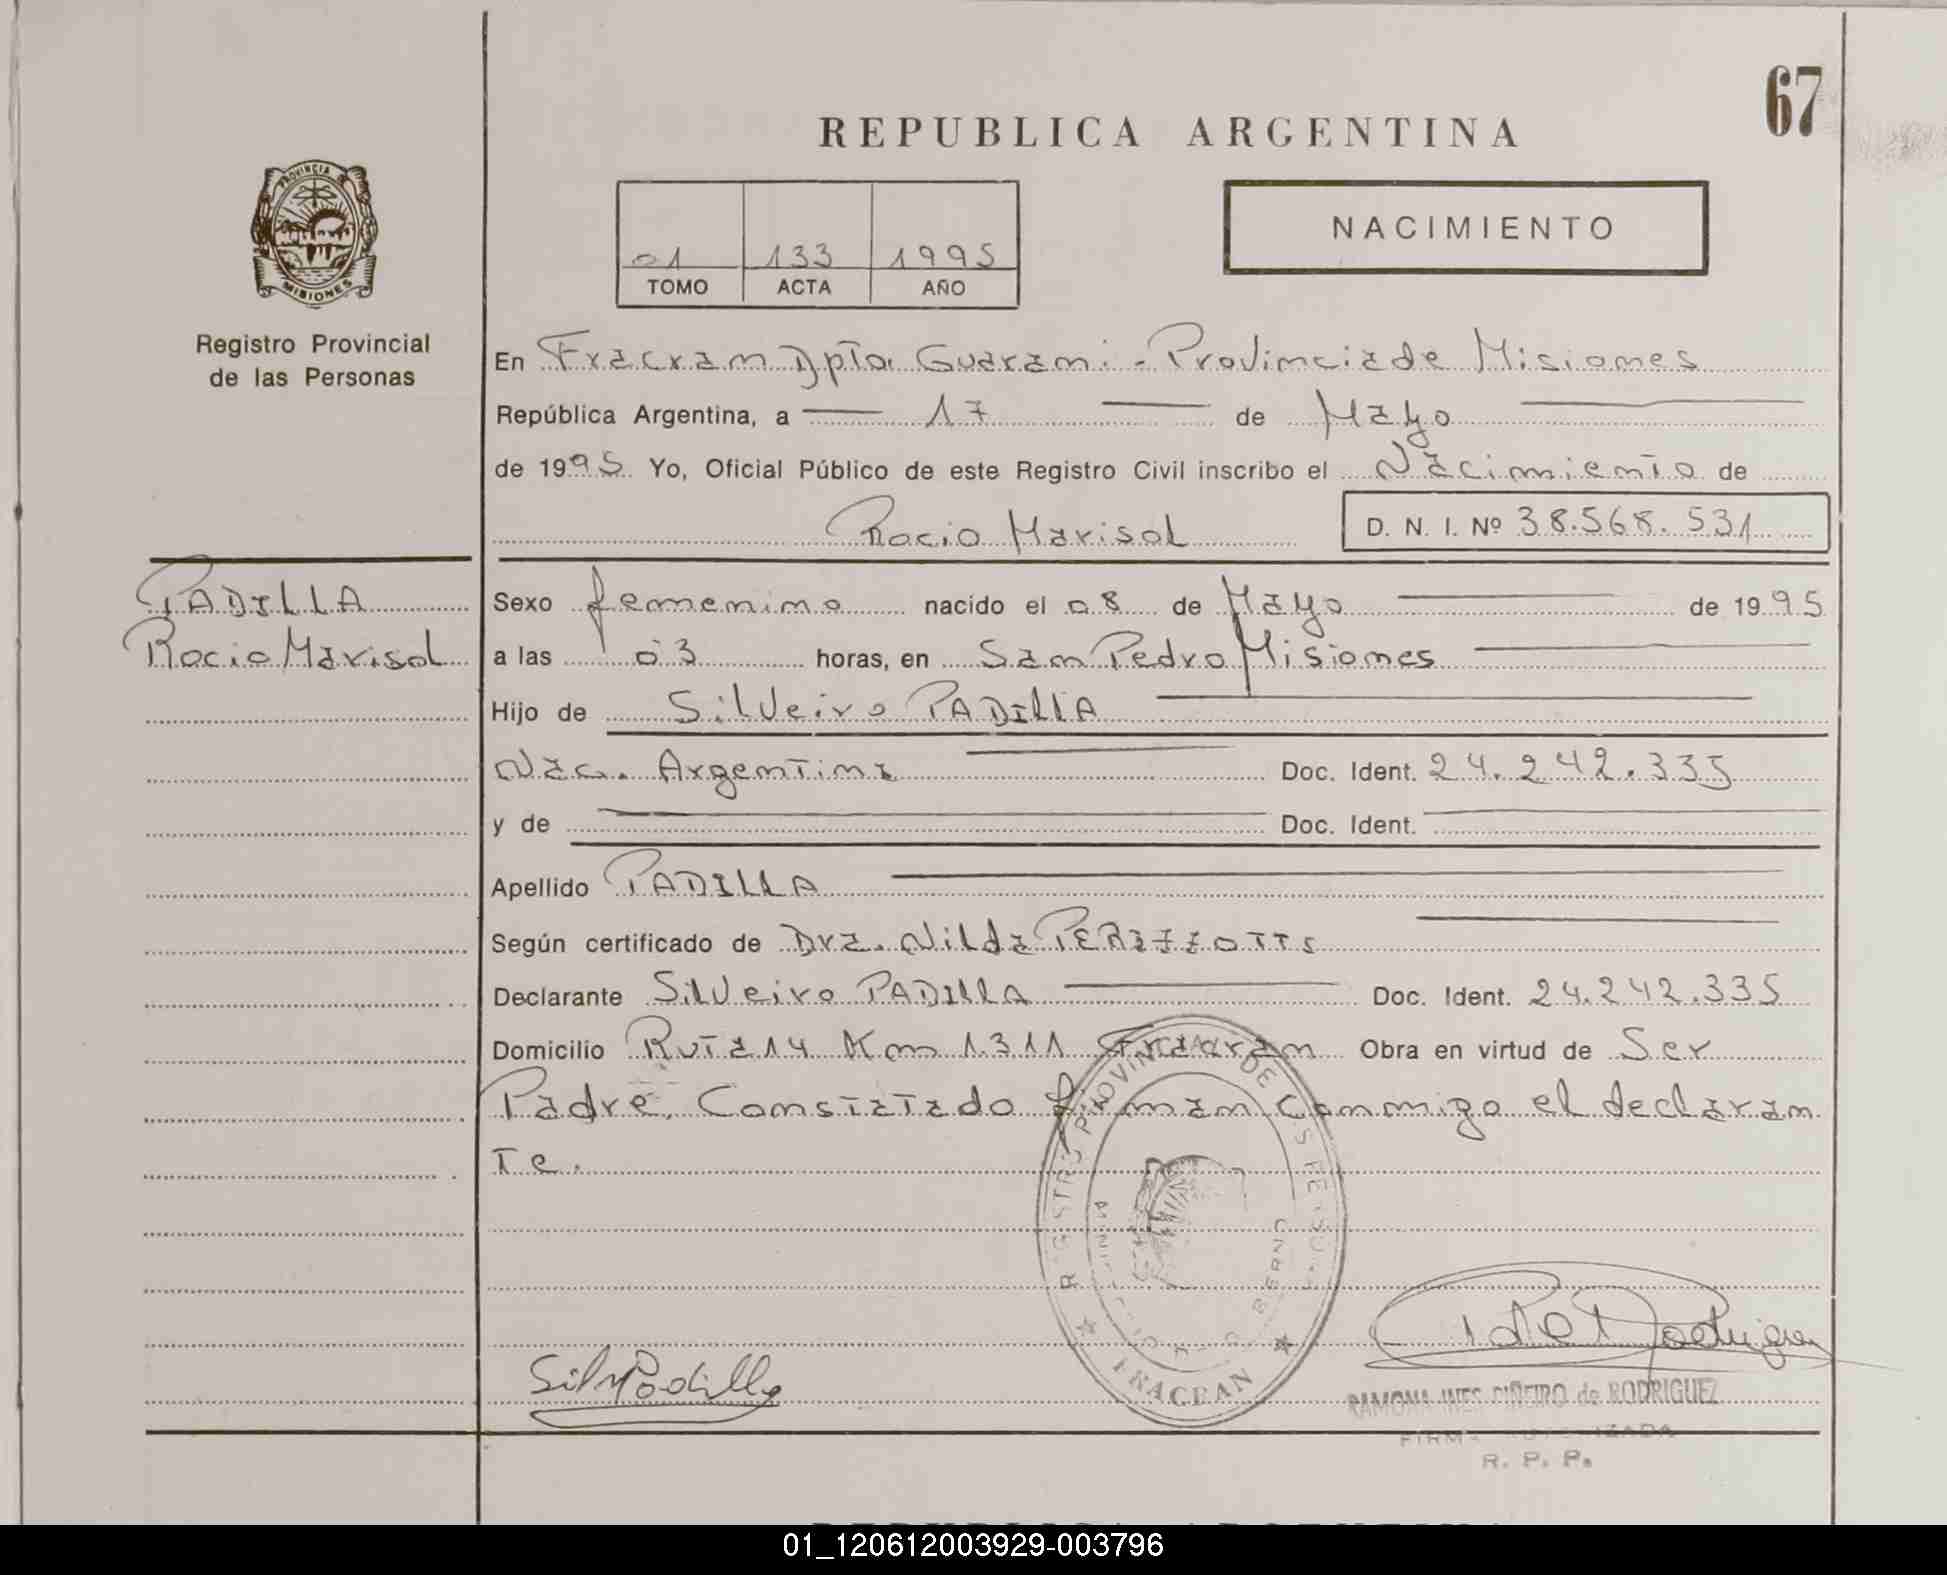 67
REPUBLICA ARGENTINA
PROVINCIA DE
MISIONES
Registro Provincial
de las Personas
01 133 1995
TOMO ACTA AÑO
NACIMIENTO
En Fracram Dpto. Guarani - Provincia de Misiones
República Argentina, a 17 de Mayo
de 1995 Yo, Oficial Público de este Registro Civil inscribo el Nacimiento de
Rocio Marisol D. N. I. Nº 38.568.531
PADILLA
Rocio Marisol
Sexo femenino nacido el 08 de Mayo de 1995
a las 03 horas, en San Pedro Misiones
Hijo de Silveiro PADILLA
Nac. Argentina Doc. Ident. 24.242.335
y de Doc. Ident.
Apellido PADILLA
Según certificado de Dra. Nilda
Declarante Silveiro PADILLA Doc. Ident. 24.242.335
Domicilio Ruta 14 Km 1311 Fracran Obra en virtud de Ser
Padre. Constatado firman conmigo el declaran
te.
REGISTRO PROVINCIAL DE
FRACRAN
Silv Padilla
Rodriguez
RAMONA INES PIÑEIRO de RODRIGUEZ
FIRMA AUTORIZADA
R. P. P.
01_120612003929-003796